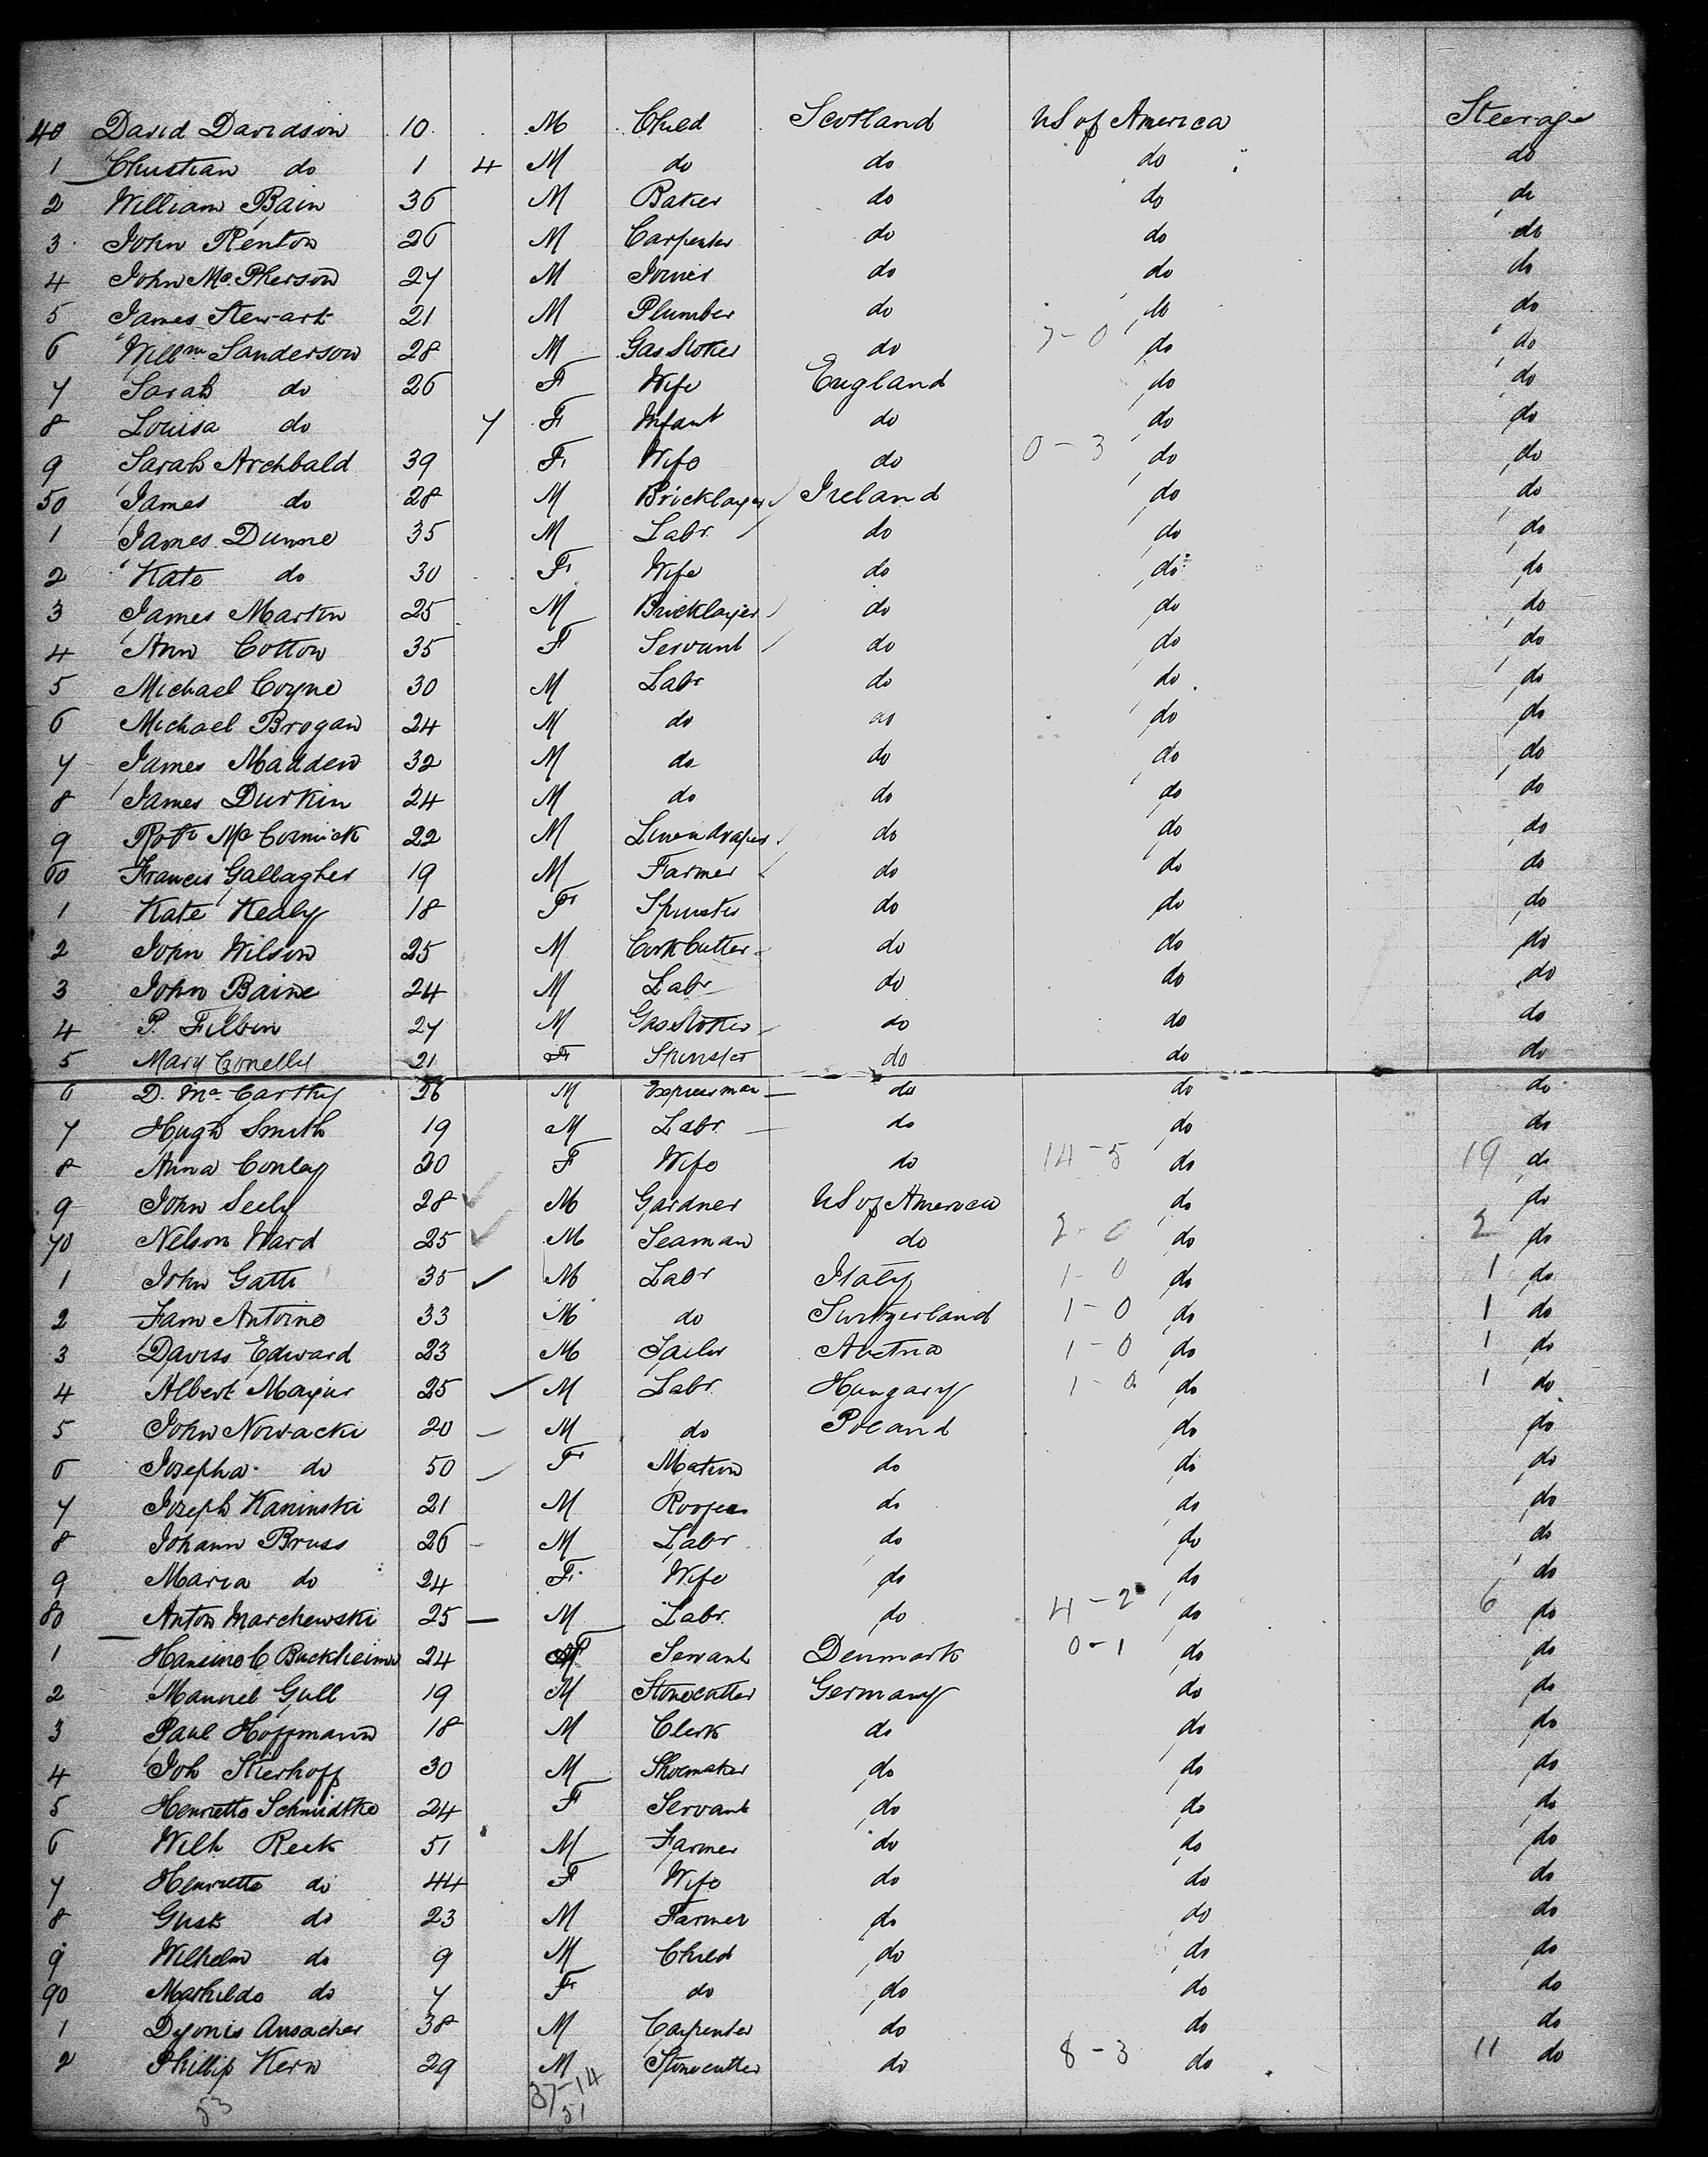 40 David Davidson 10 M Child Scotland US of America Steerage
1 Christian do 1 4 M do do do do
2 William Bain 36 M Baker do do do
3 John Renton 26 M Carpenter do do do
4 John McPherson 27 M Joiner do do do
5 James Stewart 21 M Plumber do do do
6 Willm Sanderson 28 M Gas Stoker do 7-0 do do
7 Sarah do 26 F Wife England do do
8 Louisa do 7 F Infant do do do
9 Sarah Archbald 39 F Wife do 0-3 do do
50 James do 28 M Bricklayer Ireland do do
1 James Dunne 35 M Labr do do do
2 Kate do 30 F Wife do do do
3 James Martin 25 M Bricklayer do do do
4 Ann Cotton 35 F Servant do do do
5 Michael Coyne 30 M Labr do do do
6 Michael Brogan 24 M do do do do
7 James Madden 32 M do do do do
8 James Durkin 24 M do do do do
9 Robt McCormick 22 M Linendraper do do do
60 Francis Gallagher 19 M Farmer do do do
1 Kate Kealy 18 F Spinster do do do
2 John Wilson 25 M Cork Cutter do do do
3 John Baine 24 M Labr do do do
4 P. Filbin 27 M Gas Stoker do do do
5 Mary Conelly 21 F Spinster do do do
6 D. McCarthy 26 M Expressman do do do
7 Hugh Smith 19 M Labr do do do
8 Anna Conlay 20 F Wife do 14-5 do 19 do
9 John Seely 28 M Gardner US of America do do
70 Nelson Ward 25 M Seaman do 2-0 do 2 do
1 John Gatti 35 M Labr Italy 1-0 do 1 do
2 Fam Antoino 33 M do Switzerland 1-0 do 1 do
3 Daviss Edward 23 M Sailor Austria 1-0 do 1 do
4 Albert Mayur 25 M Labr Hungary 1-0 do 1 do
5 John Nowacki 20 M do Poland do do
6 Josepha do 50 F Matron do do do
7 Joseph Kaninski 21 M do do do
8 Johann Bruss 26 M Labr do do do
9 Maria do 24 F Wife do do do
80 Anton Marchewski 25 M Labr do 4-2 do 6 do
1 Hansine C Buckheimer 24 F Servant Denmark 0-1 do do
2 Manuel Gull 19 M Stonecutter Germany do do
3 Paul Hoffmann 18 M Clerk do do do
4 Joh Stierhoff 30 M Shoemaker do do do
5 Henriette Schmidtke 24 F Servant do do do
6 Wilh Reek 51 M Farmer do do do
7 Henriette do 44 F Wife do do do
8 Gust do 23 M Farmer do do do
9 Wilhelm do 9 M Child do do do
90 Mathilde do 7 F do do do do
1 Dyonis Ansacher 38 M Carpenter do do do
2 Phillip Kern 29 M Stonecutter do 8-3 do 11 do
53 37-14
51